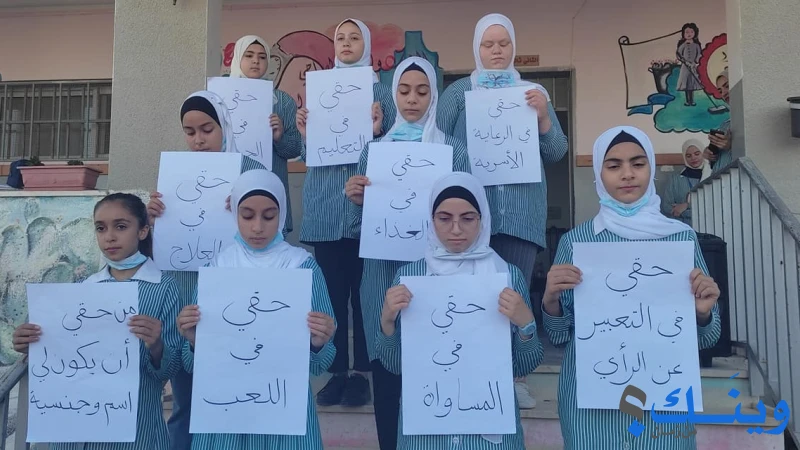 حقي
حقي
في
التعليم
حقي
في الرعاية
الأسرية
حقي
في
العلاج
حقي
في
الغذاء
من حقي
أن يكون لي
اسم وجنسية
حقي
في
اللعب
حقي
في
المساواة
حقي
في التعبير
عن الرأي
وينك